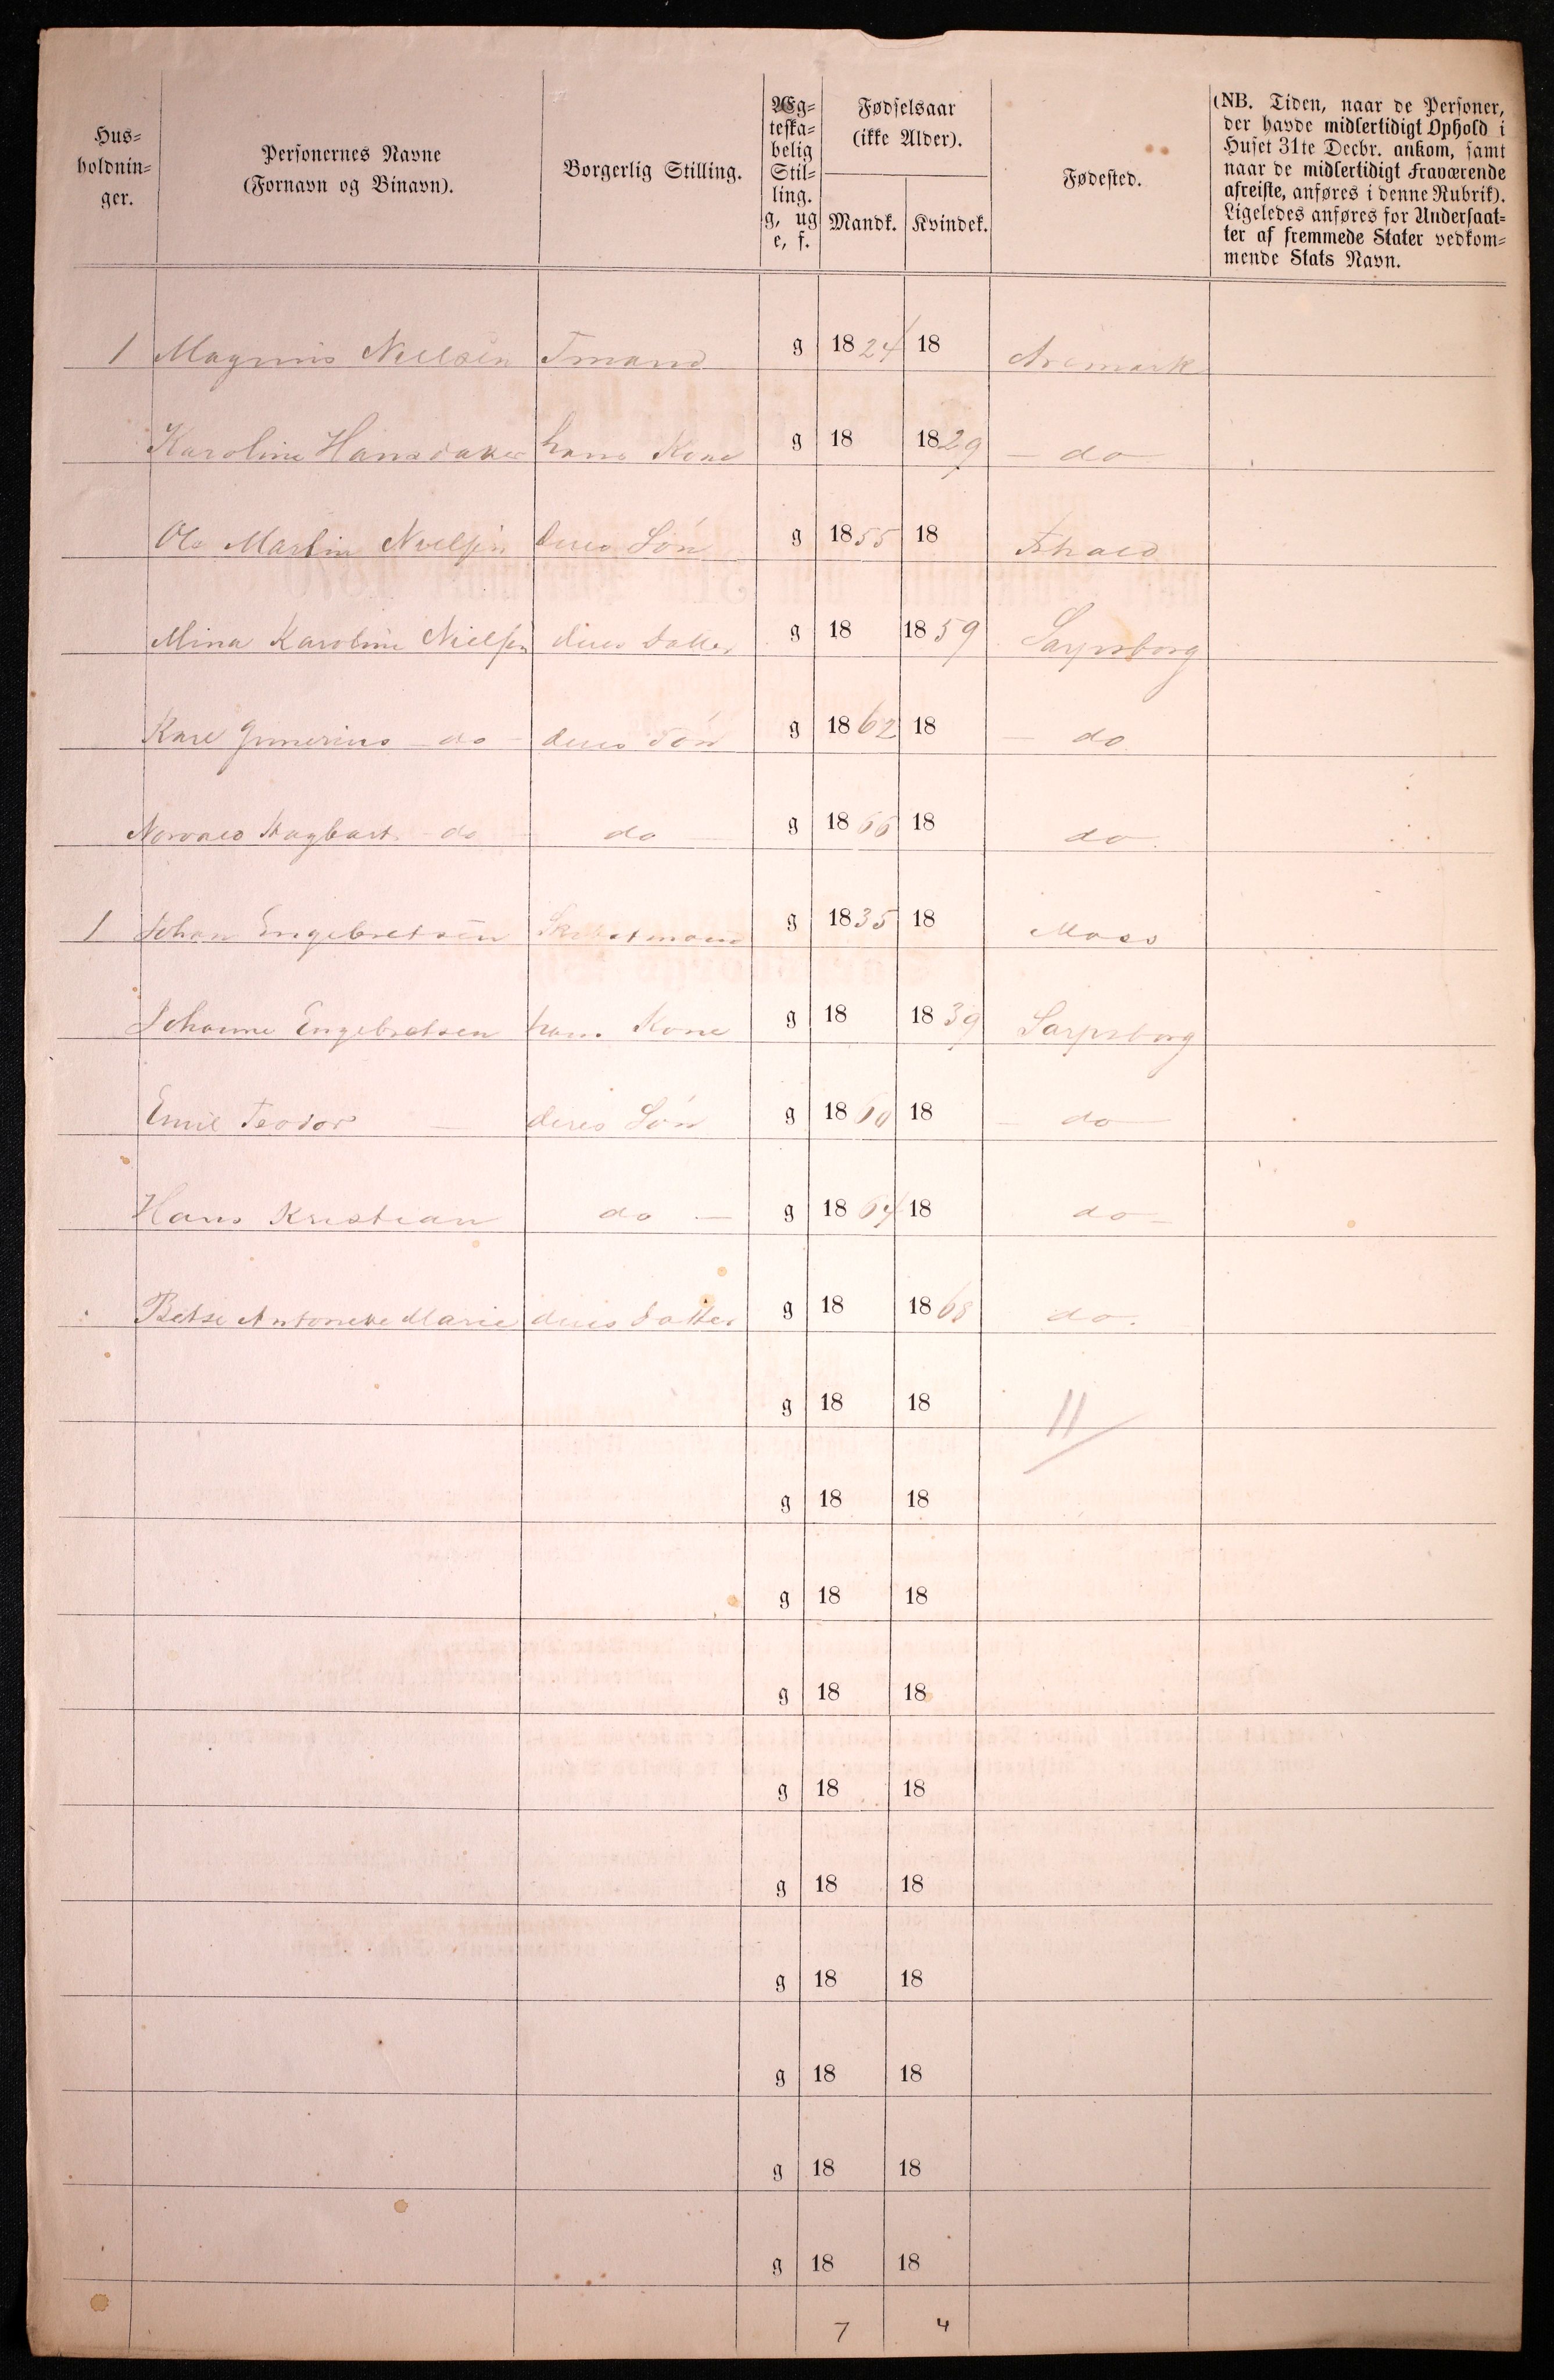 Hus=
holdnin=
ger.
Personernes Navne
(Fornavn og Binavn).
Borgerlig Stilling.
Æg=
teska=
belig
Stil=
ling.
g, ug
e, f.
Fødselsaar
(ikke Alder).
Mandk. Kvindek.
Fødested.
(NB. Tiden, naar de Personer,
der havde midlertidigt Ophold i
Huset 31te Decbr. ankom, samt
naar de midlertidigt Fraværende
afreiste, anføres i denne Rubrik).
Ligeledes anføres for Undersaat=
ter af fremmede Stater vedkom=
mende Stats Navn.
1 Magnus Nielsen Tmand g 1824 18 Aremark
Karoline Hansdatter hans Kone g 18 1829 - do -
Ole Martin Nielsen deres Søn g 1855 18 Fshald
Mina Karoline Nielsen deres Datter g 18 1859 Sarpsborg
Karl Gunerius - do - deres Søn g 1862 18 - do.
Norvald Hagbart - do - do - g 1866 18 do.
1 Johan Engebretsen g 1835 18 Moss
Johanne Engebretsen hans Kone g 18 1839 Sarpsborg
Emil Teodor - deres Søn g 1860 18 - do -
Hans Kristian do - g 1864 18 do -
Betse Marie deres Datter g 18 1868 do.
g 18 18 11
g 18 18
g 18 18
g 18 18
g 18 18
g 18 18
g 18 18
g 18 18
g 18 18
g 18 18
7 4